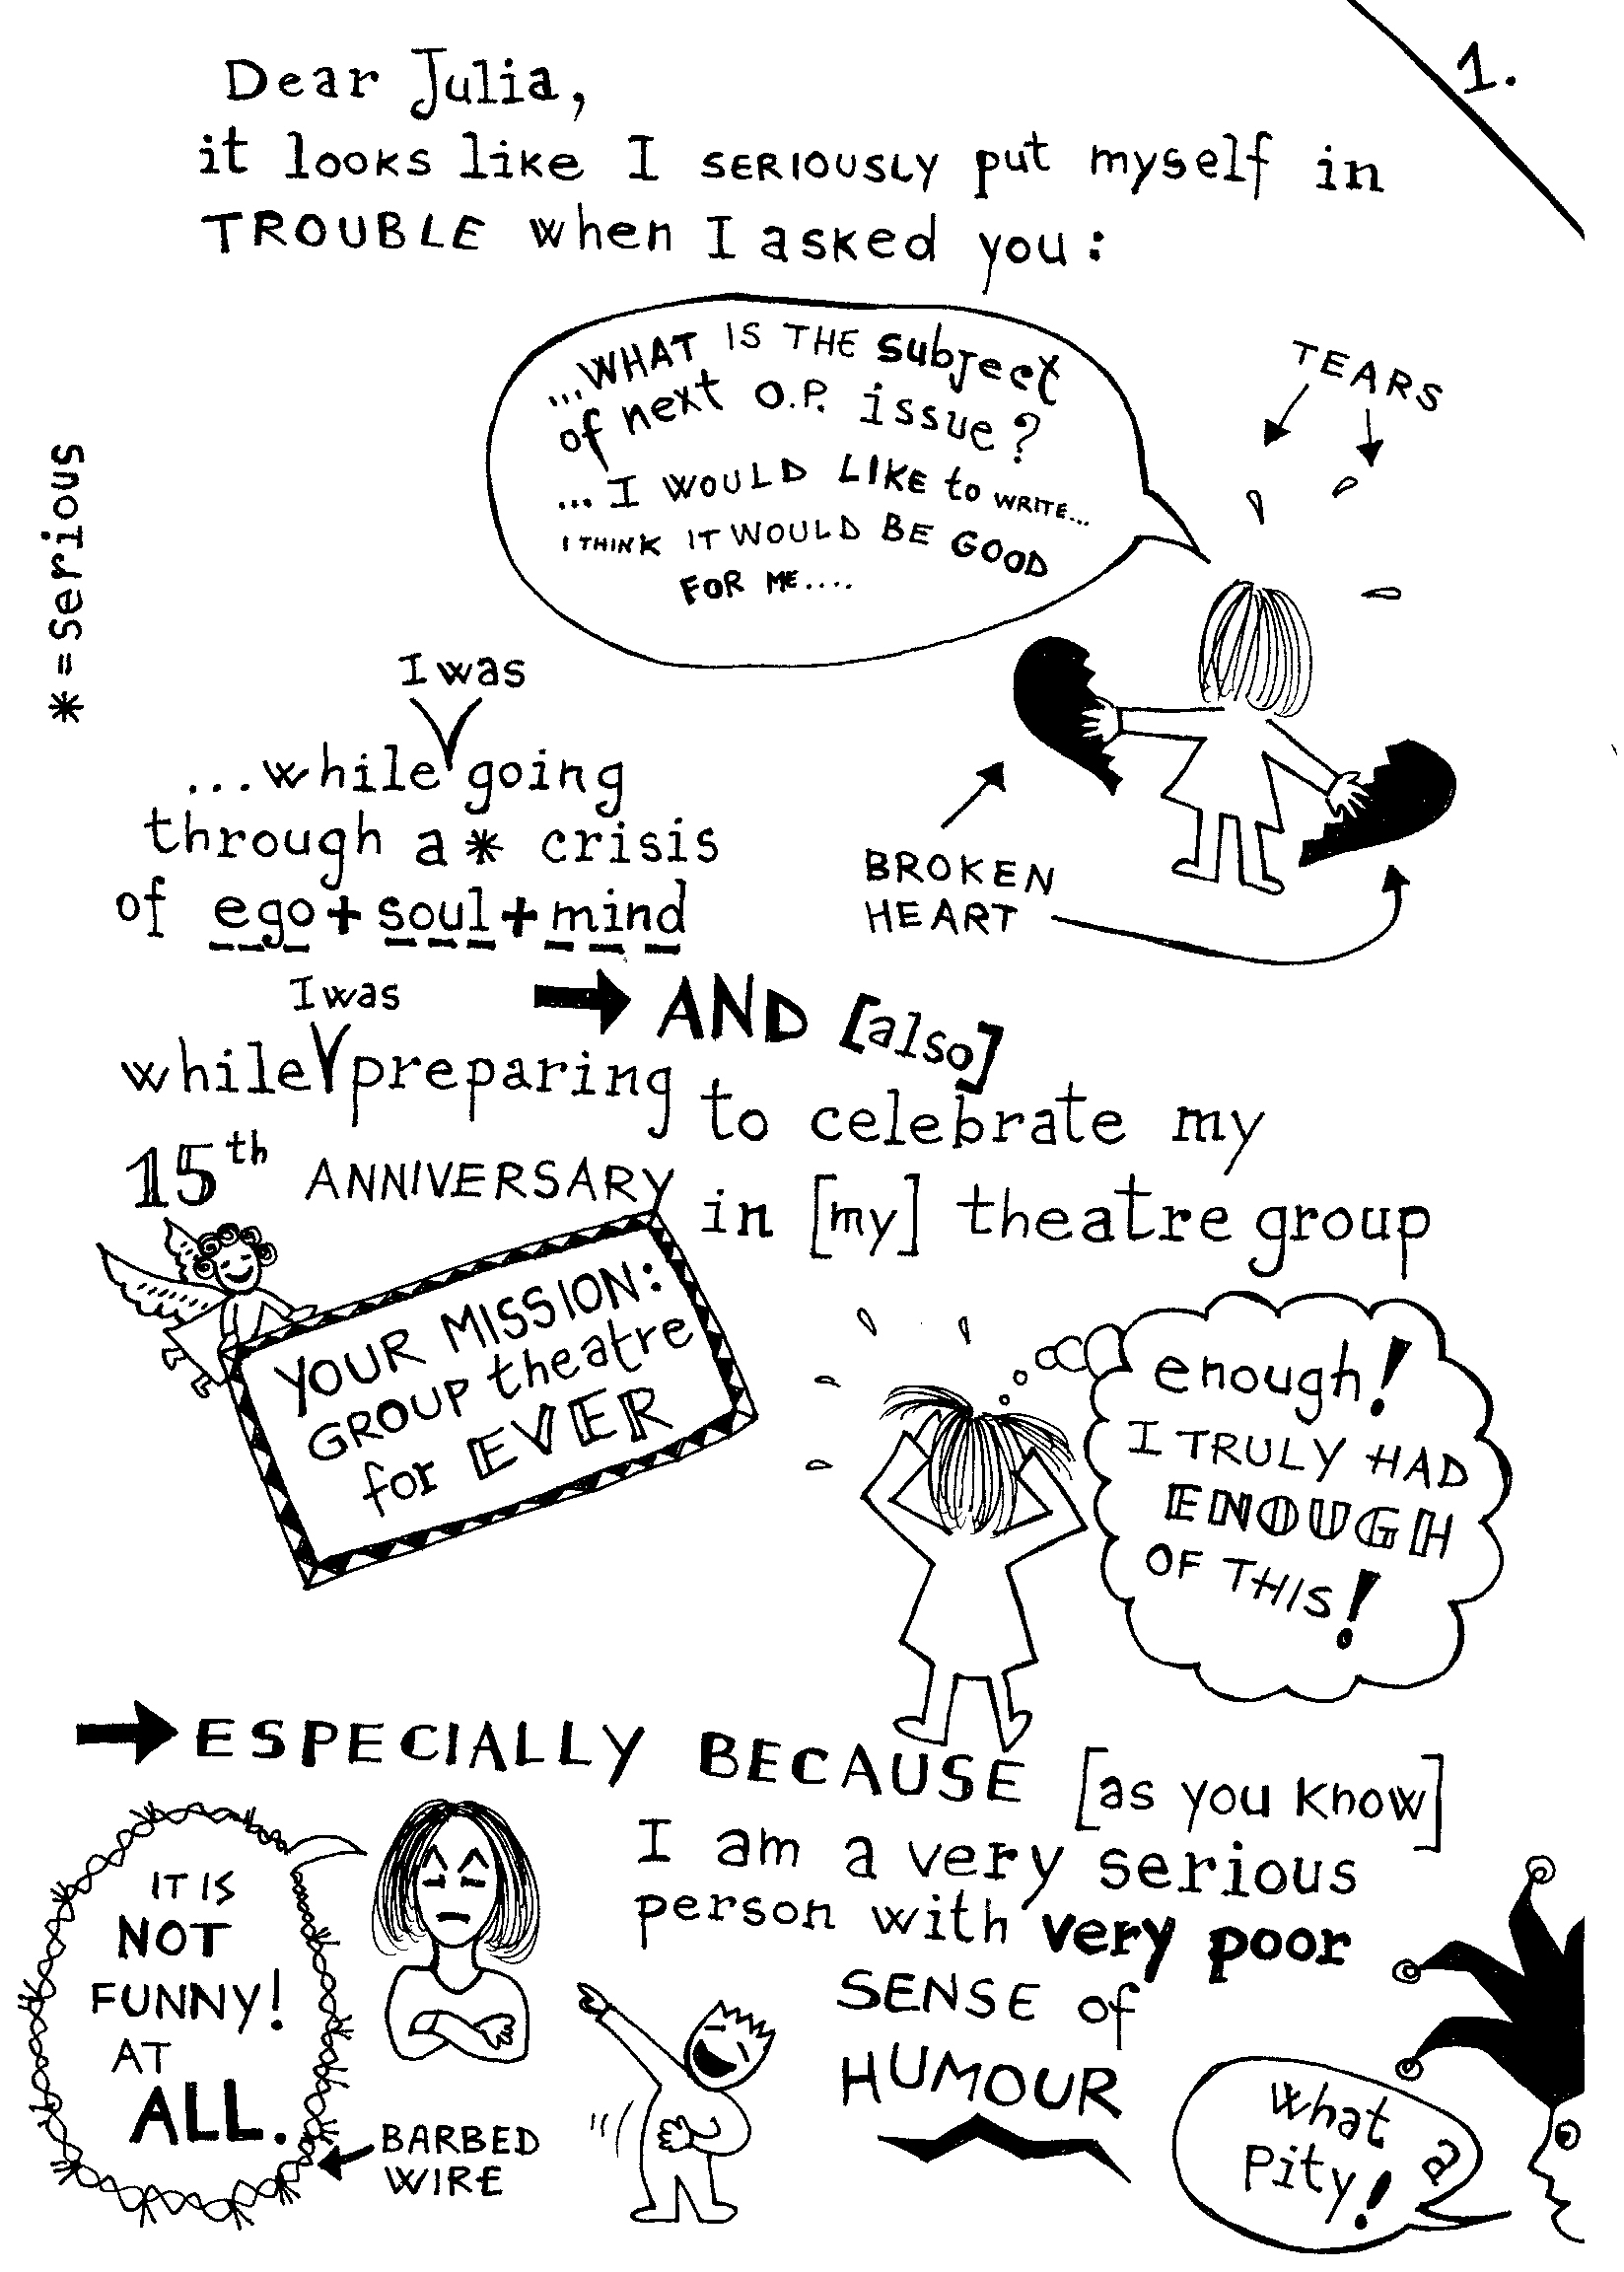 1.
Dear Julia,
it looks like I SERIOUSLY put myself in
TROUBLE when I asked you:
...WHAT IS THE subject
of next O.P. issue?
...I WOULD LIKE to WRITE...
I THINK IT WOULD BE GOOD
FOR ME....
TEARS
*=serious
I was
...while going
through a * crisis
of ego + soul + mind
BROKEN
HEART
AND [also]
I was
while preparing
to celebrate my
15th ANNIVERSARY
in [my] theatre group
YOUR MISSION:
GROUP theatre
for EVER
enough!
I TRULY HAD
ENOUGH
OF THIS!
ESPECIALLY BECAUSE [as you know]
I am a very serious
person with very poor
SENSE of
HUMOUR
IT IS
NOT
FUNNY!
AT
ALL.
BARBED
WIRE
What a
Pity!